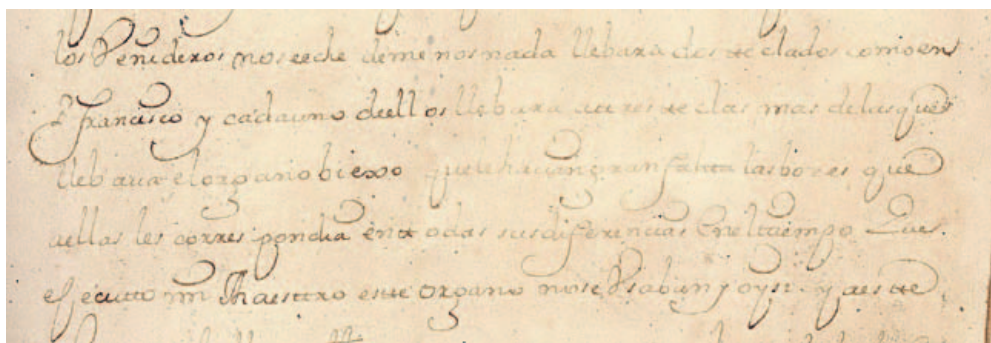 los Venideros no se eche de menos nada llebara dos tteclados como en
S Francisco y cada uno dellos llebara a tres teclas mas de las que
llebaua el organo biexo que le hacian gran falta las bozes que
a ellas les correspondia en ttodas sus diferencias En el tiempo Que
ejecutto mi Maesttro estte organo no se Vsaban y oy si y aestte